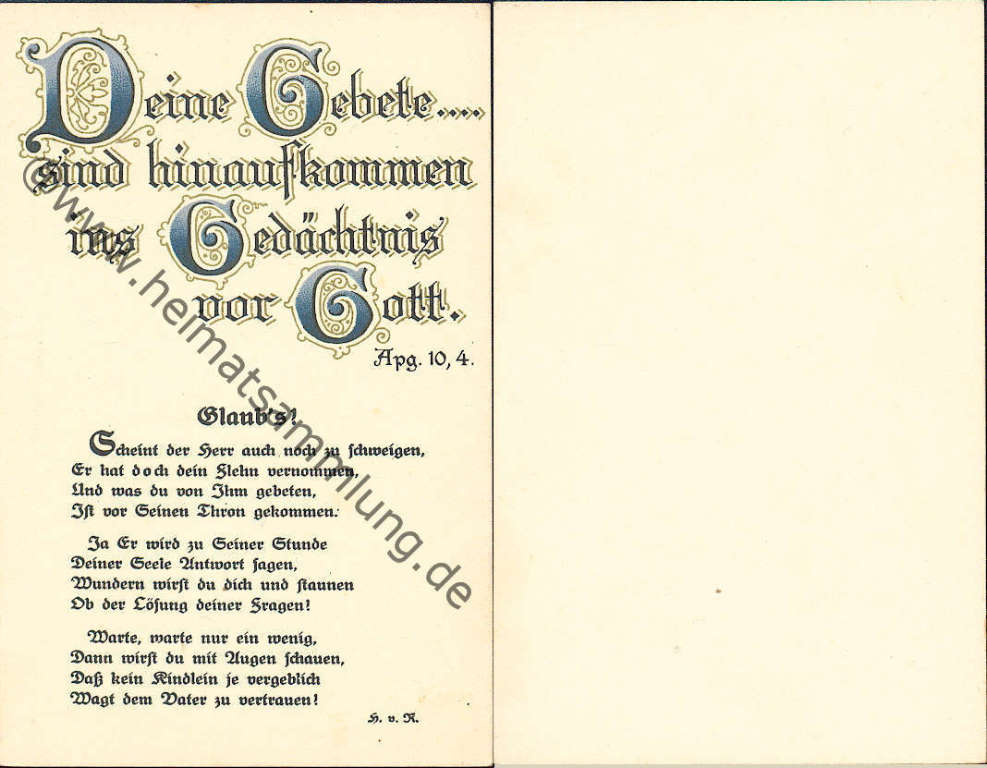 Deine Gebete....
sind hinaufkommen
ins Gedächtnis
vor Gott.
Apg. 10, 4.
Glaub's!
Scheint der Herr auch noch zu schweigen,
Er hat doch dein Flehn vernommen,
Und was du von Ihm gebeten,
Ist vor Seinen Thron gekommen.
Ja Er wird zu Seiner Stunde
Deiner Seele Antwort sagen,
Wundern wirst du dich und staunen
Ob der Lösung deiner Fragen!
Warte, warte nur ein wenig,
Dann wirst du mit Augen schauen,
Daß kein Kindlein je vergeblich
Wagt dem Vater zu vertrauen!
H. v. R.
©www.heimatsammlung.de